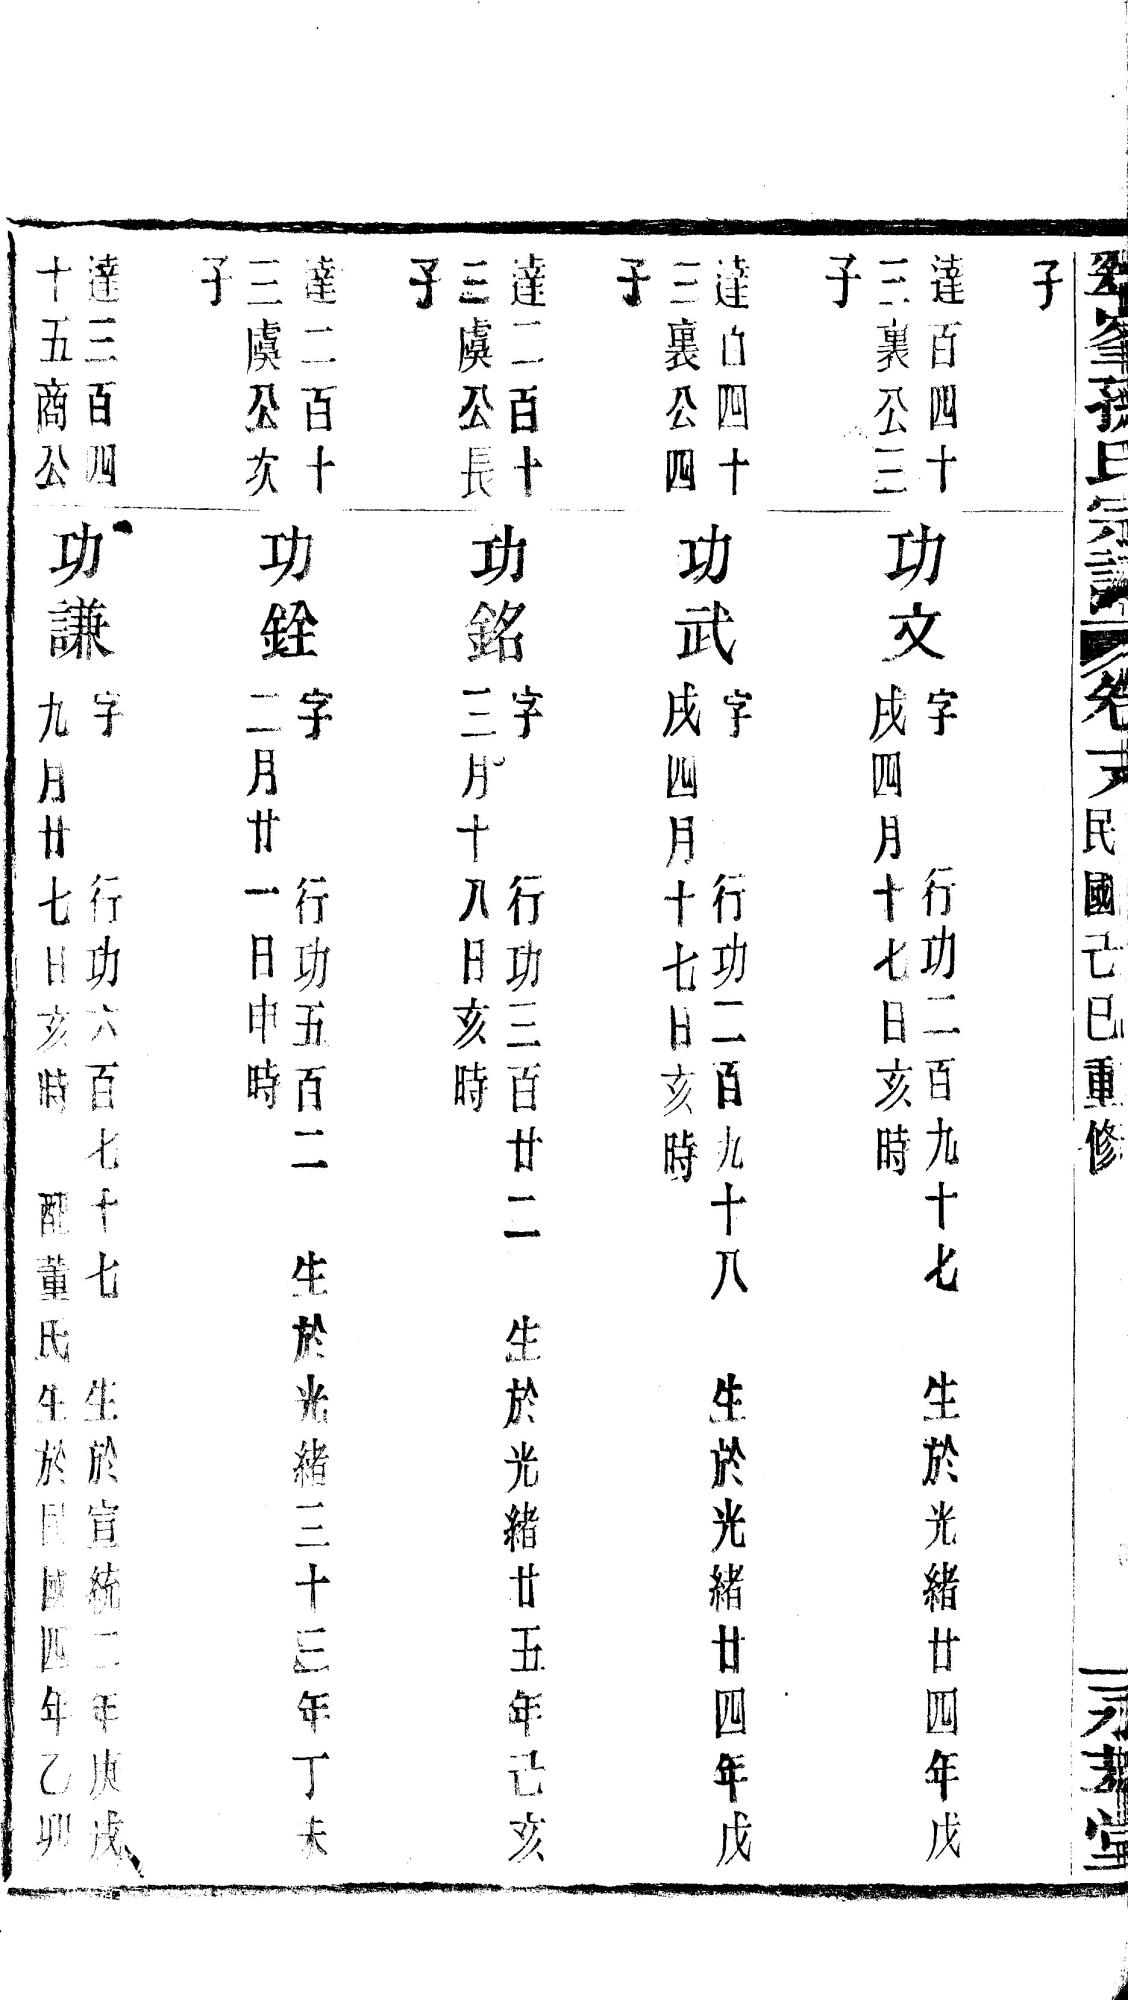 峯孫氏宗譜 卷 民國己巳重修
堂
子
達百四十
三裏公三
子
功文
字 行功二百九十七 生於光緒廿四年戊
戌四月十七日亥時
達百四十
三裏公四
子
功武
字 行功二百九十八 生於光緒廿四年戊
戌四月十七日亥時
達二百十
三虞公長
子
功銘
字 行功三百廿二 生於光緒廿五年己亥
三月十八日亥時
達二百十
三虞公次
子
功銓
字 行功五百二 生於光緒三十三年丁未
二月廿一日申時
達三百四
十五商公
功謙
字 行功六百七十七 生於宣統二年庚戌
九月廿七日亥時 配董氏生於民國四年乙卯